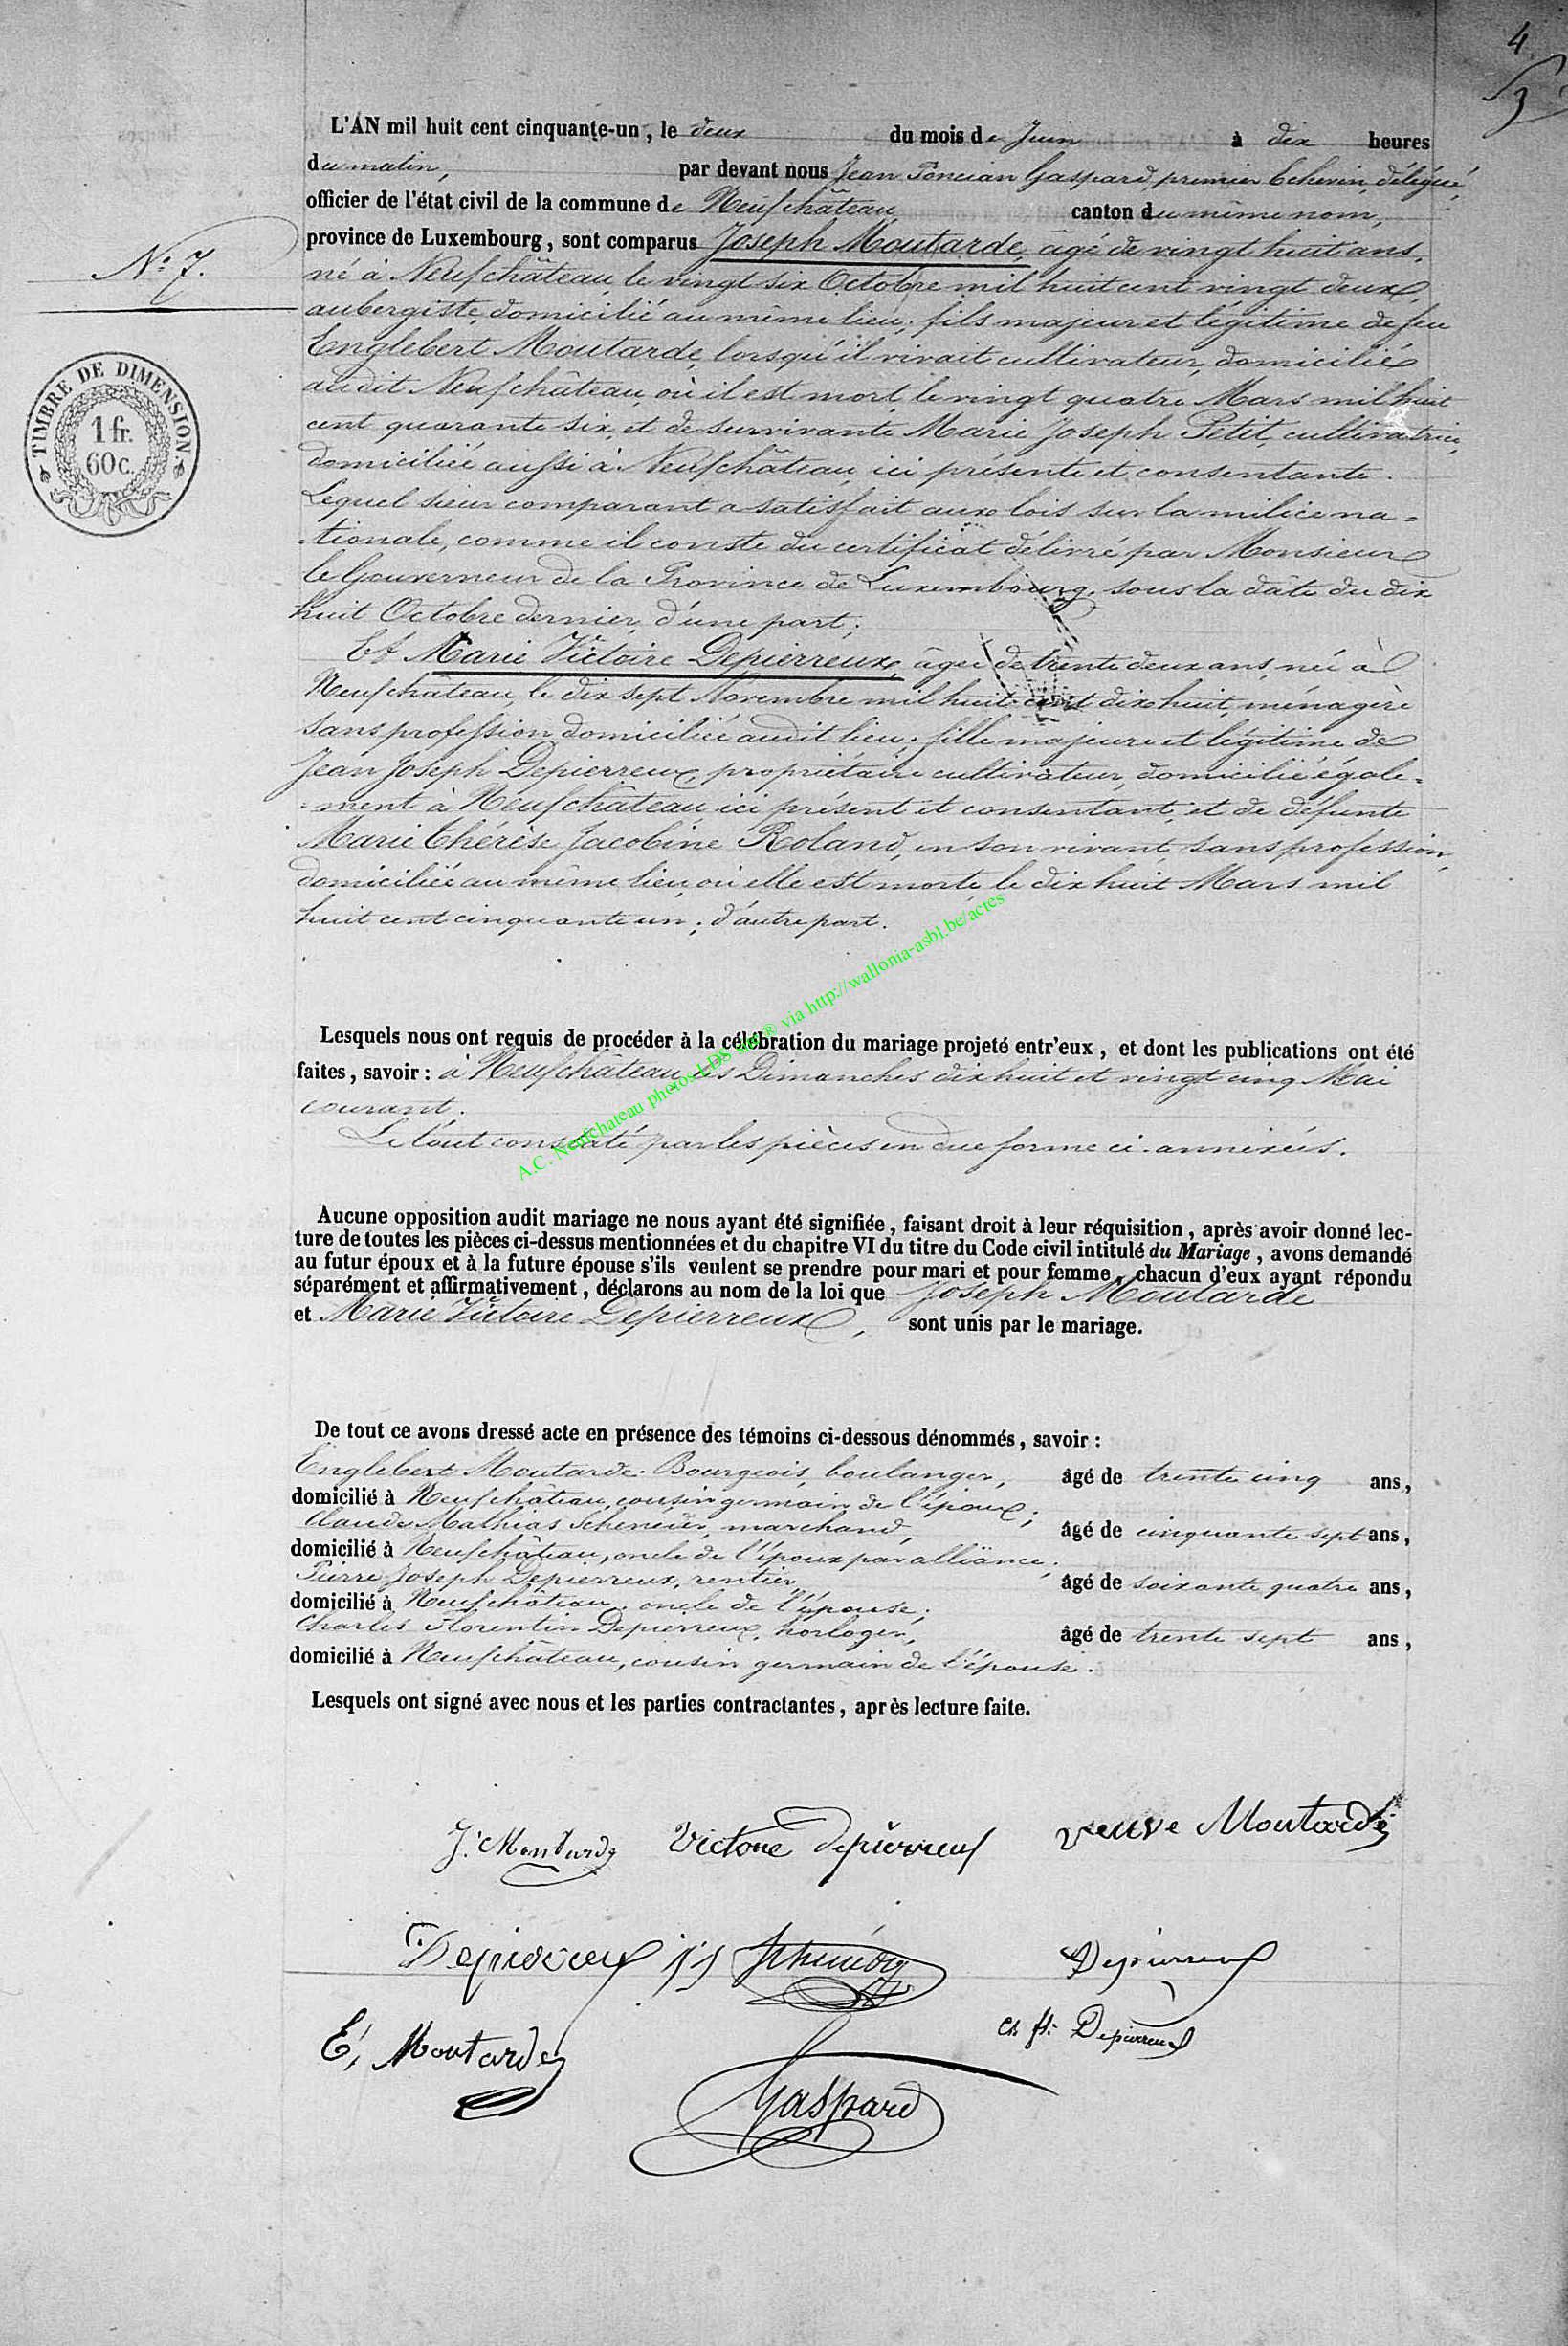 4
L'AN mil huit cent cinquante-un, le deux du mois de Juin à dix heures
du matin, par devant nous Jean Poncian Gaspard, premier Echevin, délégué,
officier de l'état civil de la commune de Neufchâteau, canton du même nom,
province de Luxembourg, sont comparus Joseph Moutarde, âgé de vingt huit ans,
N° 7.
né à Neufchâteau le vingt six Octobre mil huit cent vingt deux,
aubergiste, domicilié au même lieu; fils majeur et légitime de feu
Englebert Moutarde, lorsqu'il vivait cultivateur, domicilié
audit Neufchâteau, où il est mort le vingt quatre Mars mil huit
cent quarante six, et de survivante Marie Joseph Petit, cultivatrice,
domiciliée aussi à Neufchâteau, ici présente et consentante.
Lequel sieur comparant a satisfait aux lois sur la milice na=
tionale, comme il conste du certificat délivré par Monsieur
le Gouverneur de la Province de Luxembourg, sous la date du dix
huit Octobre dernier, d'une part;
Et Marie Victoire Depierreux, âgée de trente deux ans, née à
Neufchâteau, le dix sept Novembre mil huit cent dix huit, ménagère
sans profession domiciliée audit lieu; fille majeure et légitime de
Jean Joseph Depierreux, propriétaire cultivateur, domicilié égale=
ment à Neufchâteau, ici présent et consentant, et de défunte
Marie Thérèse Jacobine Roland, en son vivant, sans profession,
domiciliée au même lieu, où elle est morte, le dix huit Mars mil
huit cent cinquante un; d'autre part.
TIMBRE DE DIMENSION.
1 fr.
60 c.
Lesquels nous ont requis de procéder à la célébration du mariage projeté entr'eux, et dont les publications ont été
faites, savoir: à Neufchâteau, les Dimanches dix huit et vingt cinq Mai
courant.
Le tout constaté par les pièces en due forme ci-annexées.
A.C. Neufchateau photos LDS via http://wallonia-asbl.be/actes
Aucune opposition audit mariage ne nous ayant été signifiée, faisant droit à leur réquisition, après avoir donné lec-
ture de toutes les pièces ci-dessus mentionnées et du chapitre VI du titre du Code civil intitulé du Mariage, avons demandé
au futur époux et à la future épouse s'ils veulent se prendre pour mari et pour femme, chacun d'eux ayant répondu
séparément et affirmativement, déclarons au nom de la loi que Joseph Moutarde
et Marie Victoire Depierreux, sont unis par le mariage.
De tout ce avons dressé acte en présence des témoins ci-dessous dénommés, savoir:
Englebert Moutarde-Bourgeois, boulanger, âgé de trente cinq ans,
domicilié à Neufchâteau, cousin germain de l'époux;
Claude Mathias Scheneur, marchand, âgé de cinquante sept ans,
domicilié à Neufchâteau, oncle de l'époux par alliance;
Pierre Joseph Depierreux, rentier, âgé de soixante quatre ans,
domicilié à Neufchâteau, oncle de l'épouse;
Charles Florentin Depierreux, horloger, âgé de trente sept ans,
domicilié à Neufchâteau, cousin germain de l'épouse.
Lesquels ont signé avec nous et les parties contractantes, après lecture faite.
J. Moutarde Victoire depierreux veuve Moutarde
Depierreux Depierreux
E. Moutarde Ch. fl. Depierreux
Gaspard